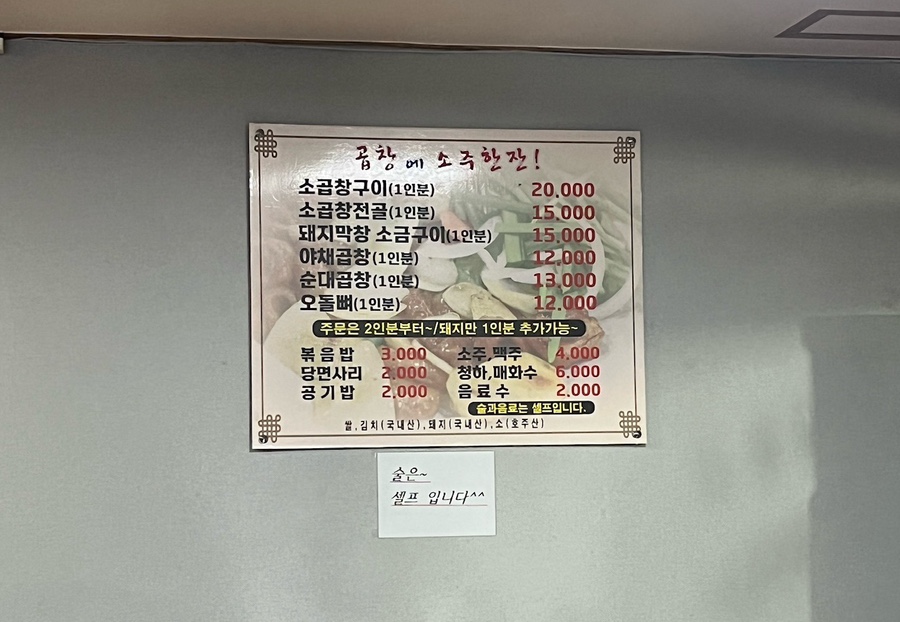 곱창에 소주한잔!
소곱창구이(1인분) 20,000
소곱창전골(1인분) 15,000
돼지막창 소금구이(1인분) 15,000
야채곱창(1인분) 12,000
순대곱창(1인분) 13,000
오돌뼈(1인분) 12,000
주문은 2인분부터~/돼지만 1인분 추가가능~
볶음밥 3,000 소주,맥주 4,000
당면사리 2,000 청하,매화수 6,000
공기밥 2,000 음료수 2,000
술과음료는 셀프입니다.
쌀,김치(국내산),돼지(국내산),소(호주산)
술은~
셀프 입니다^^